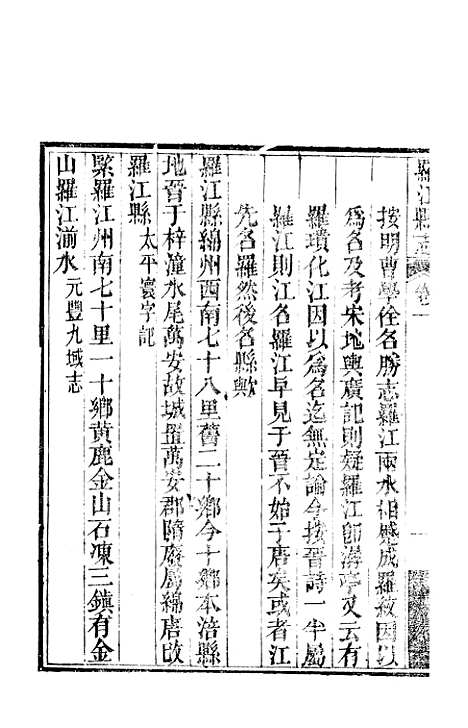 羅江縣志 卷一
按明曹學佺名勝志羅江兩水相蹙成羅紋因以
爲名及考宋地輿廣記則疑羅江卽潺亭又云有
羅璝化江因以爲名迄無定論今按晉詩一半屬
羅江則江名羅江早見于晉不始于唐矣或者江
先名羅然後名縣歟
羅江縣綿州西南七十八里舊二十鄉今十鄉本涪縣
地晉于梓潼水尾萬安故城置萬安郡隋廢屬綿唐改
羅江縣 太平寰宇記
緊羅江州南七十里一十鄉黃鹿金山石凍三鎮有金
山羅江湔水 元豐九域志